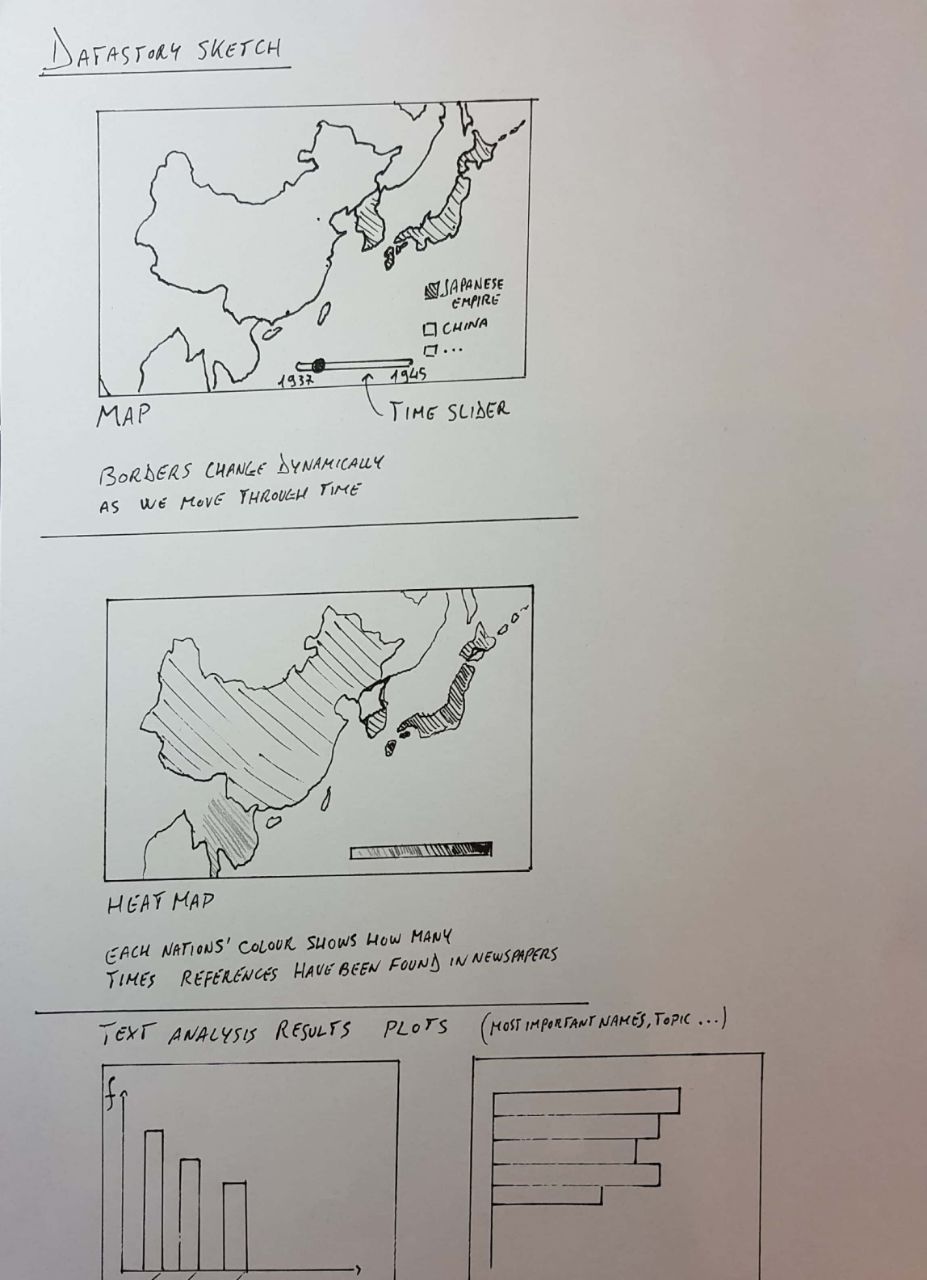 DATASTORY SKETCH
JAPANESE
EMPIRE
CHINA
...
1937
1945
MAP
TIME SLIDER
BORDERS CHANGE DYNAMICALLY
AS WE MOVE THROUGH TIME
HEAT MAP
EACH NATIONS' COLOUR SHOWS HOW MANY
TIMES REFERENCES HAVE BEEN FOUND IN NEWSPAPERS
TEXT ANALYSIS RESULTS PLOTS (MOST IMPORTANT NAMES, TOPIC ...)
f